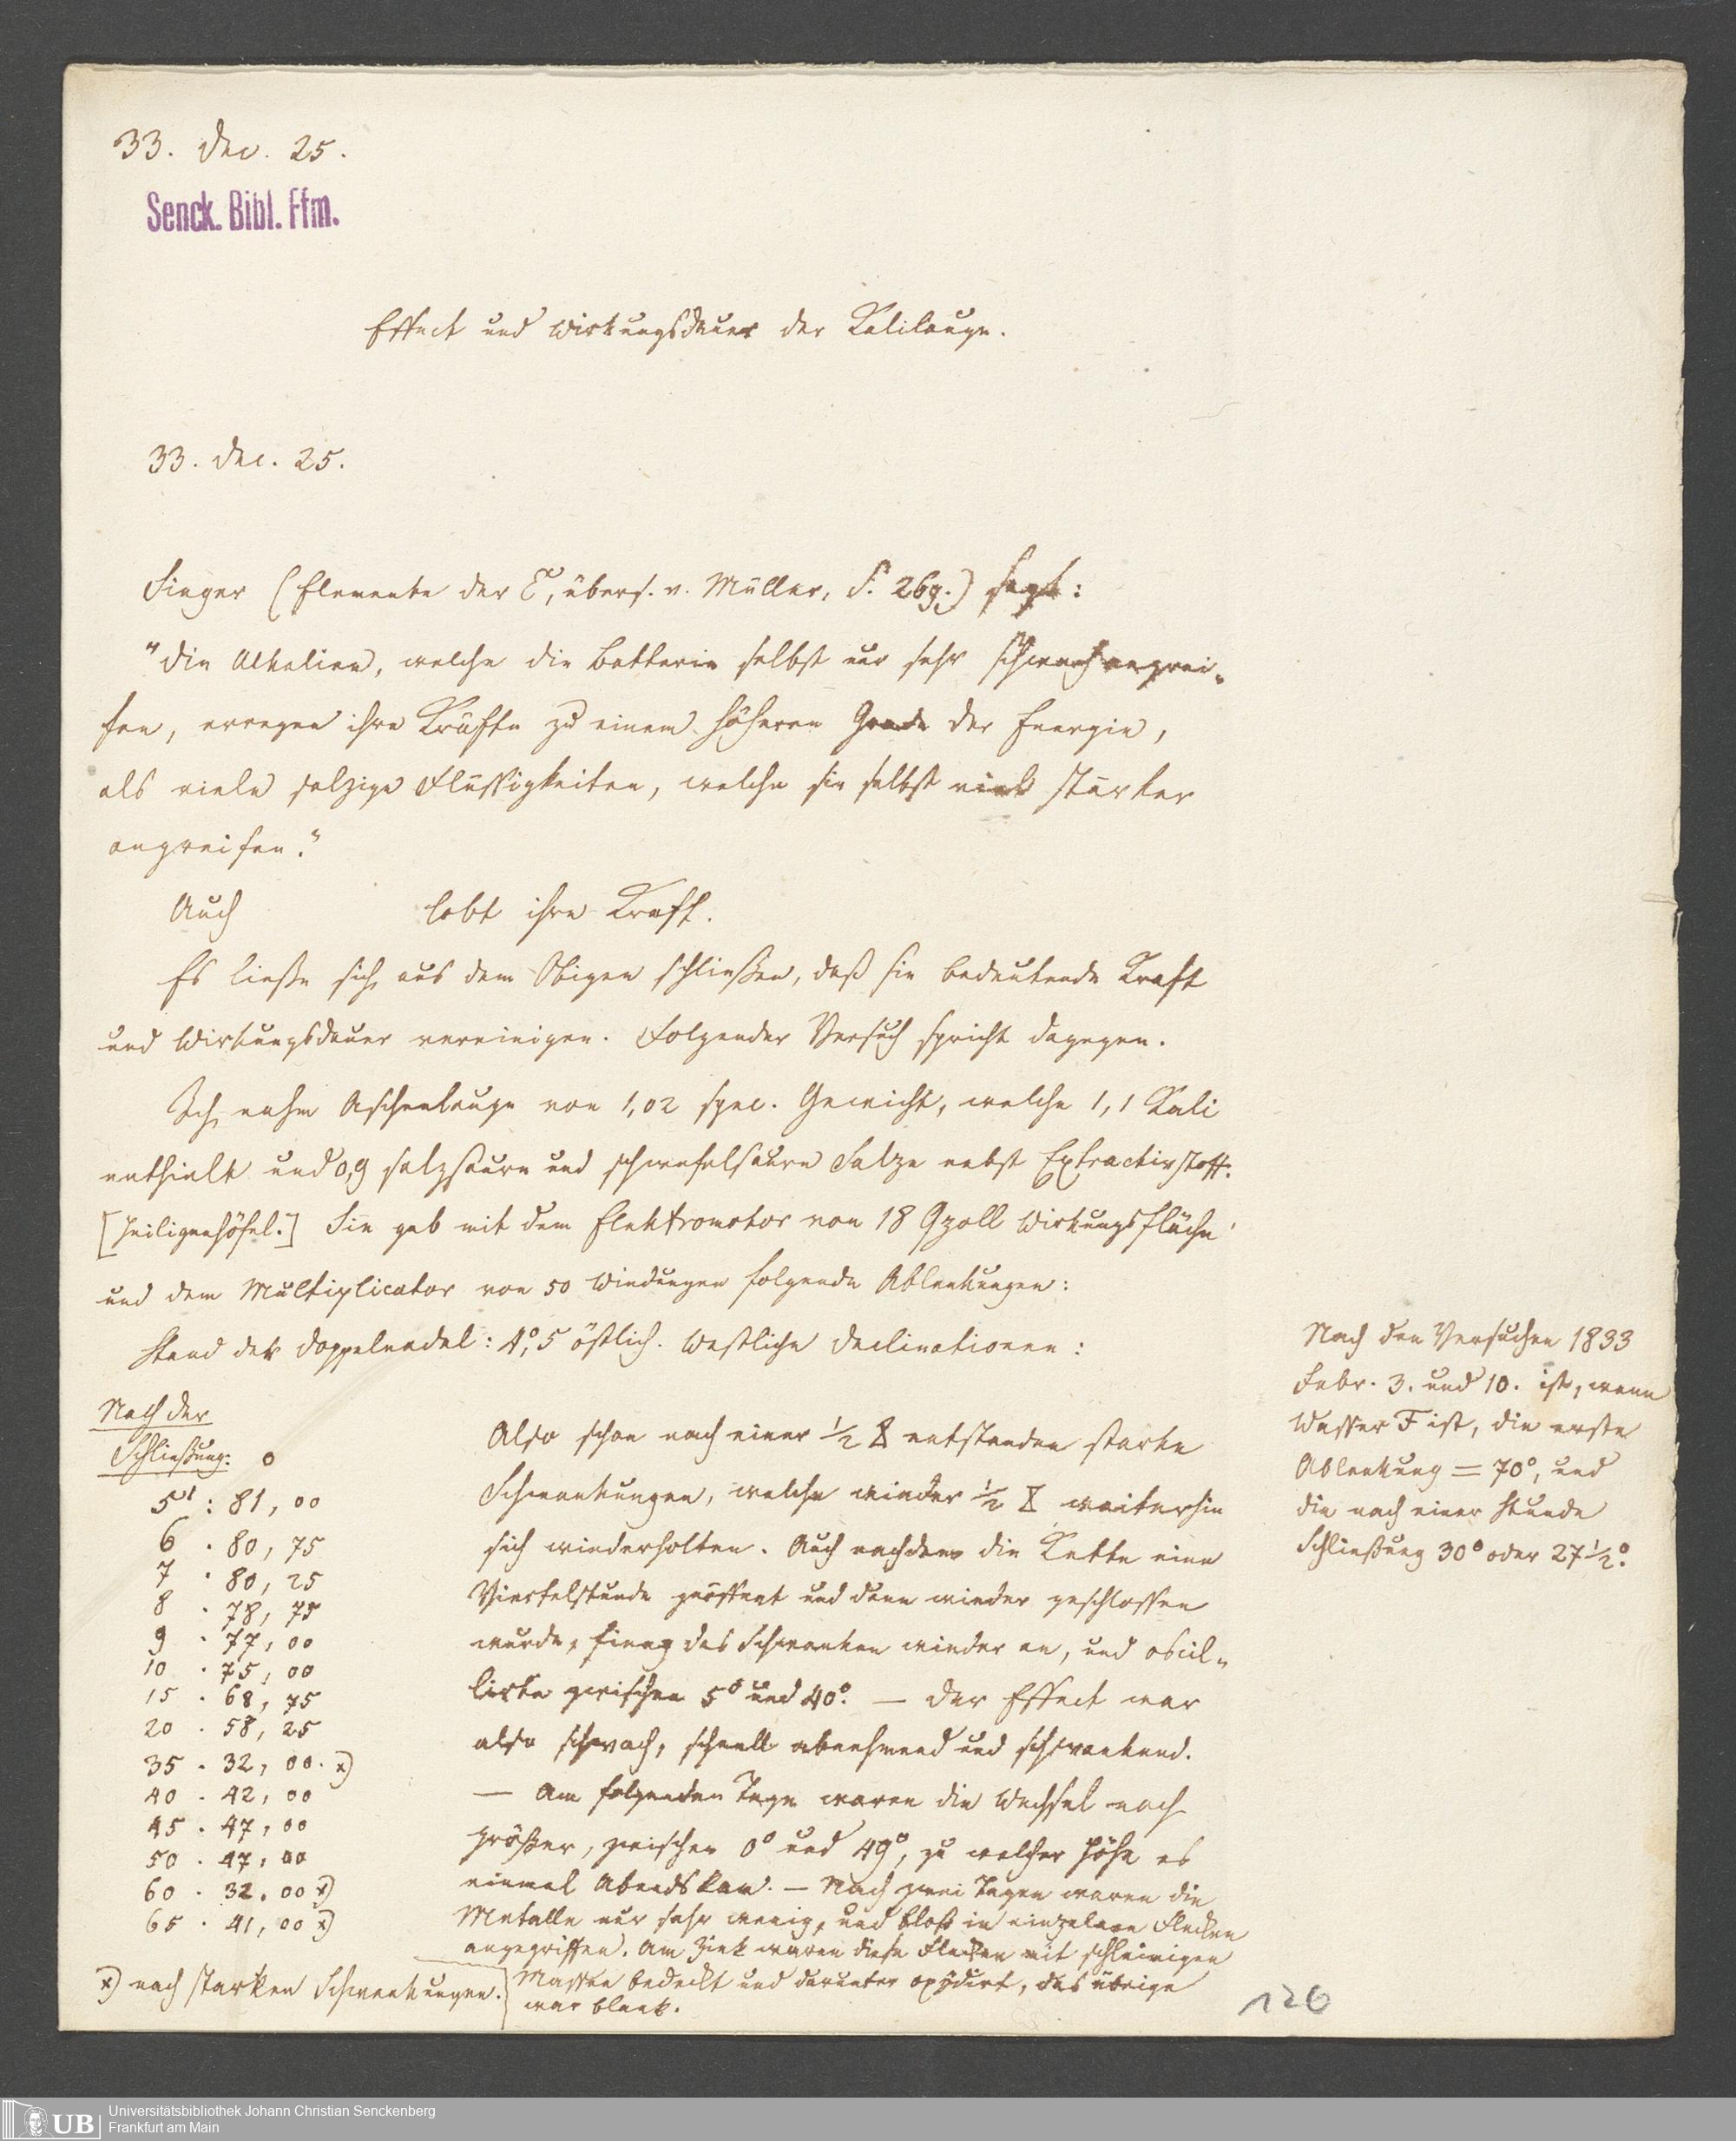 33. Dec. 25.
Senck. Bibl. Ffm.
Effect und Wirkungsdauer der Kalilauge.
33. Dec. 25.
Singer (Elemente der E, übers. v. Müller, S. 269.) sagt:
"Die Alkalien, welche die Batterie selbst nur sehr schwach angrei-
fen, erregen ihre Kräfte zu einem höheren Grade der Energie,
als viele salzige Flüssigkeiten, welche sie selbst viel stärker
angreifen."
Auch lobt ihre Kraft.
Es ließe sich aus dem Obigen schließen, daß sie bedeutende Kraft
und Wirkungsdauer vereinigen. Folgender Versuch spricht dagegen.
Ich nahm Aschenlauge von 1,02 spec. Gewicht, welche 1,1 Kali
enthielt und 0,9 salzsaure und schwefelsaure Salze nebst Extractivstoff.
[Heiligenhöfel.] Sie gab mit dem Elektromotor von 18 Qzoll Wirkungsfläche
und dem Multiplicator von 50 Windungen folgende Ablenkungen:
Stand der Doppelnadel: 4°,5 östlich. Westliche Declinationen:
Nach der
Schließung: o
5' : 81, 00
6 . 80, 75
7 . 80, 25
8 . 78, 75
9 . 77, 00
10 . 75, 00
15 . 68, 75
20 . 58, 25
35 . 32, 00. x)
40 . 42, 00
45 . 47, 00
50 . 47, 00
60 . 32, 00 x)
65 . 41, 00 x)
x) nach starken Schwankungen.
Also schon nach einer 1/2 entstanden starke
Schwankungen, welche wieder 1/2 weiterhin
sich wiederholten. Auch nachdem die Kette eine
Viertelstunde geöffnet und dann wieder geschlossen
wurde, fieng das Schwanken wieder an, und oscil-
lirte zwischen 5° und 40°. — Der Effect war
also schwach, schnell abnehmend und schwankend.
— Am folgenden Tage waren die Wechsel noch
größer, zwischen 0° und 49°, zu welcher Höhe es
einmal Abends kam. — Nach zwei Tagen waren die
Metalle nur sehr wenig, und bloß in einzelnen Flecken
angegriffen. Am Zink waren diese Flecken mit schleimigen
Massen bedeckt und darunter oxydirt, das übrige
war blank.
Nach den Versuchen 1833
Febr. 3. und 10. ist, wenn
Wasser F ist, die erste
Ablenkung = 70°, und
die nach einer Stunde
Schließung 30° oder 27 1/2°.
126
UB
Universitätsbibliothek Johann Christian Senckenberg
Frankfurt am Main